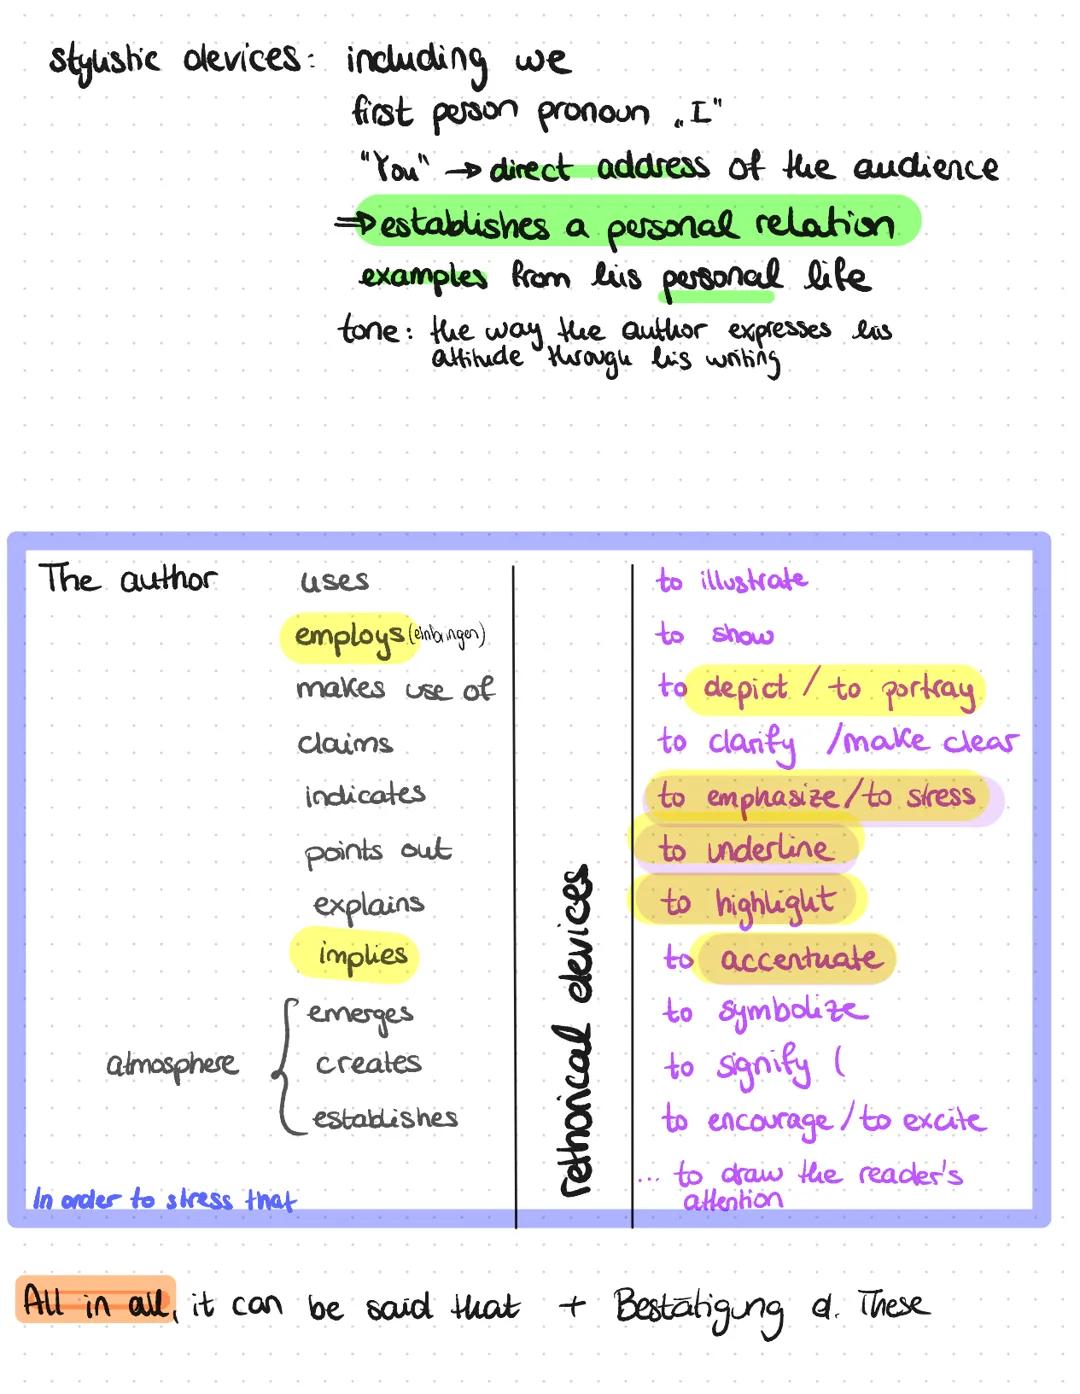 stylistic devices: including we
first person pronoun „I"
"You" → direct address of the audience
⇒ establishes a personal relation
examples from his personal life
tone: the way the author expresses his
attitude through his writing
The author uses
employs (einbringen)
makes use of
claims
indicates
points out
explains
implies
atmosphere { emerges
creates
establishes
In order to stress that
rethorical devices
to illustrate
to show
to depict / to portray
to clarify /make clear
to emphasize/to stress
to underline
to highlight
to accentuate
to symbolize
to signify (
to encourage/to excite
... to draw the reader's
attention
All in all, it can be said that + Bestätigung d. These